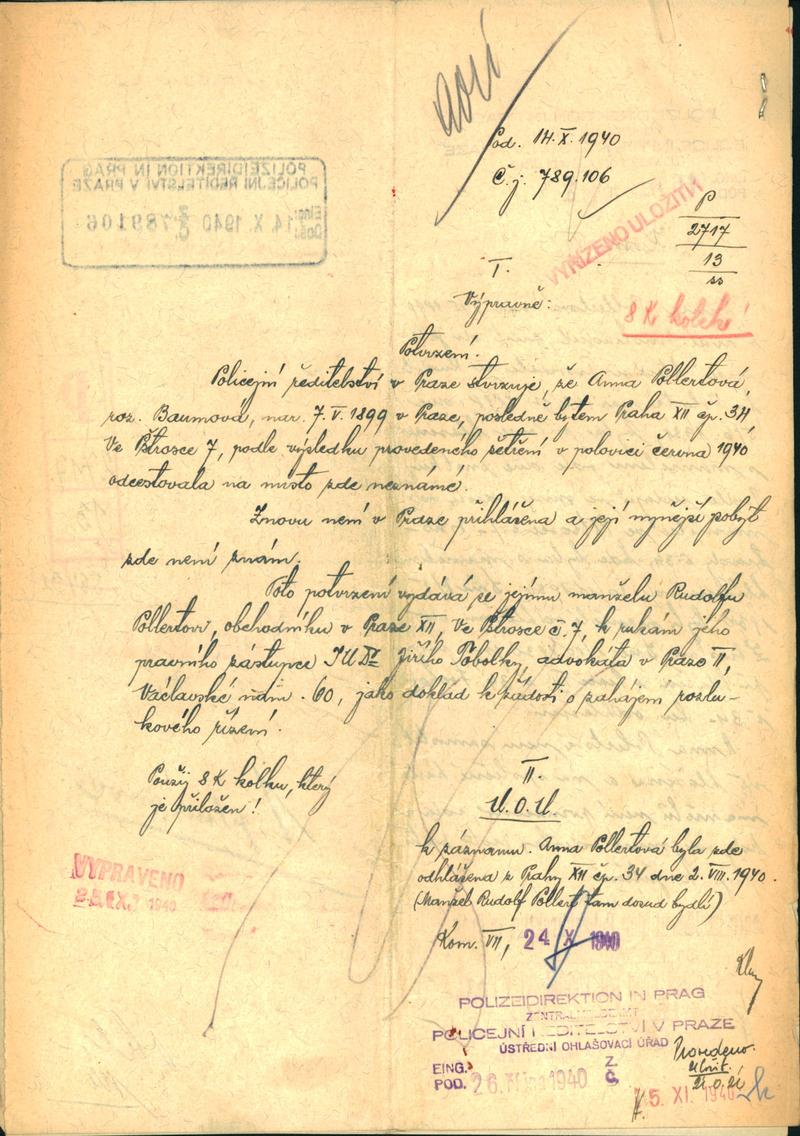 Pod. 14.X.1940
Č.j. 789.106
POLIZEIDIREKTION IN PRAG
POLICEJNÍ ŘEDITELSTVÍ V PRAZE
Eing.
Doš. 14. X. 1940 Z. Č. 789106
VYŘÍZENO ULOŽITI!
P
2717
13
ss
I.
Výpravně:
8 K kolek!
Potvrzení.
Policejní ředitelství v Praze stvrzuje, že Anna Pollertová,
roz. Baumová, nar. 7.V.1899 v Praze, posledně bytem Praha XII čp. 34,
Ve Pštrosce 7, podle výsledku provedeného šetření v polovici června 1940
odcestovala na místo zde neznámé.
Znovu není v Praze přihlášena a její nynější pobyt
zde není znám.
Toto potvrzení vydává se jejímu manželu Rudolfu
Pollertovi, obchodníku v Praze XII, Ve Pštrosce č. 7, k rukám jeho
právního zástupce JUDr Jiřího Tobolky, advokáta v Praze II,
Václavské nám. 60, jako doklad k žádosti o zahájení rozlu-
kového řízení.
Použij 8 K kolku, který
je přiložen!
II.
U.O.U.
k záznamu. Anna Pollertová byla zde
odhlášena z Prahy XII čp. 34 dne 2.VIII.1940.
(Manžel Rudolf Pollert tam dosud bydlí)
VYPRAVENO
1940
Kom. VII, 24 X 1940
POLIZEIDIREKTION IN PRAG
ZENTRALMELDEAMT
POLICEJNÍ ŘEDITELSTVÍ V PRAZE
ÚSTŘEDNÍ OHLAŠOVACÍ ÚŘAD
EING.
POD. 26. Října 1940 Z. Č.
Provedeno.
5. XI. 1940